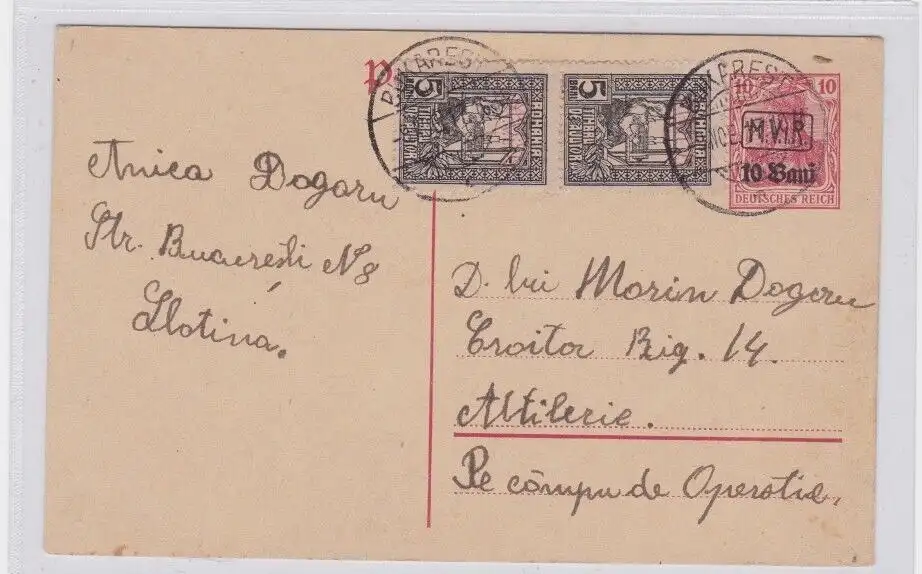 P
BUKAREST
5 BANI
ROMANIA
5 BANI
ROMANIA
BUKAREST
10 10
M.V.i.R.
10 Bani
DEUTSCHES REICH
Anica Dogaru
Str. Bucuresti N 8
Slotina.
D. lui Marin Dogaru
Croitor Rig. 14.
Altilerie.
Pe câmpu de Operatie.